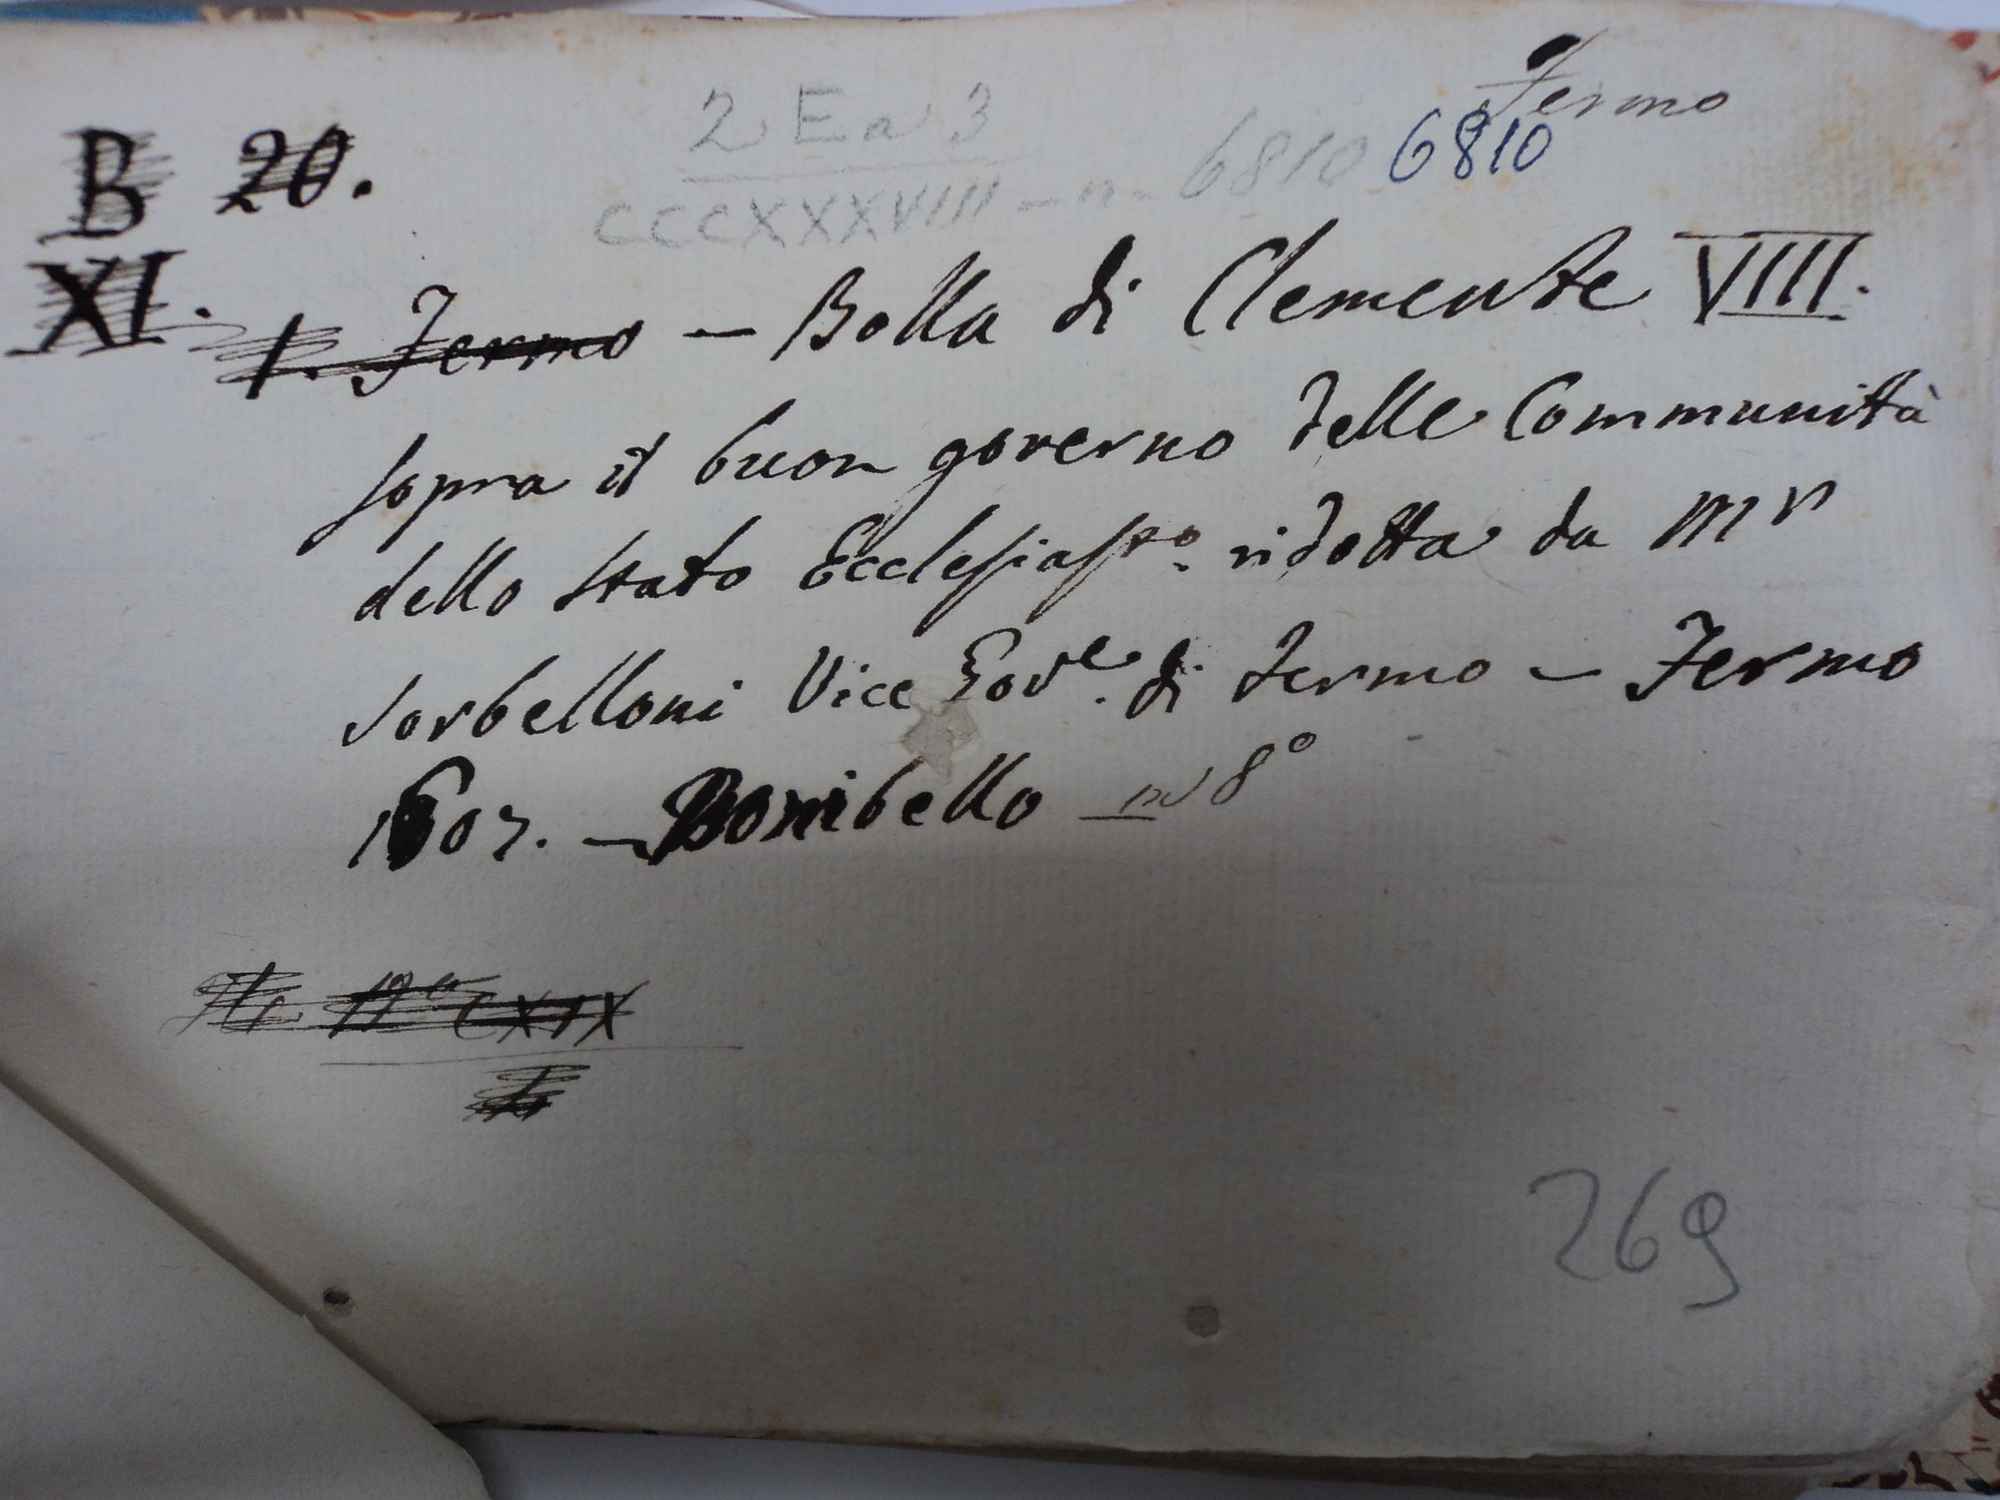 Fermo
2 E a 3
B 20. CCCXXXVIII - n. 6810 6810
XI.
1. Fermo - Bolla di Clemente VIII.
sopra il buon governo delle Communità
dello stato Ecclesiasto. ridotta da Mr
Sorbelloni Vice Gove. di Fermo - Fermo
1607. - Bonibello in 8°
CXIX
269